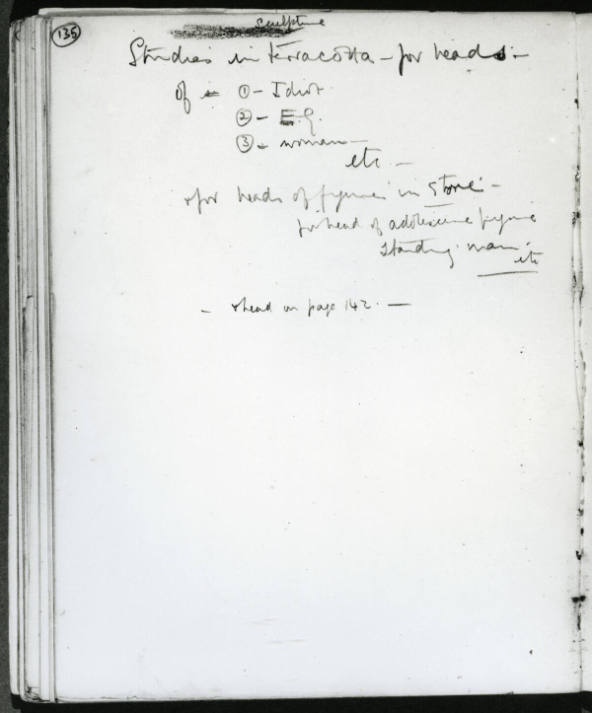 135
sculpture
Studies in terracotta – for heads –
of ① – Idiot
② – E.G.
③ – woman –
etc –
& for heads of figures in stone –
for head of adolescent figure
standing man –
etc
– & head on page 142 –